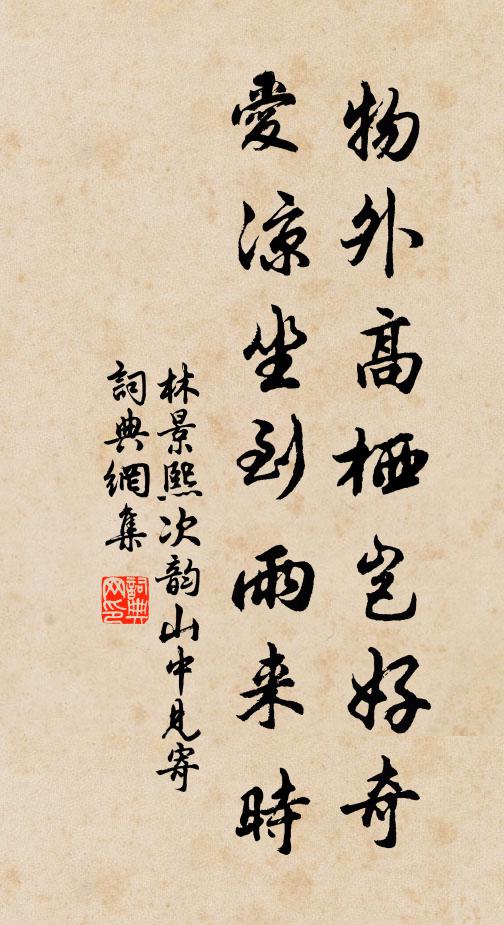 物外高栖岂好奇
愛涼坐到雨来時
林景熙次韵山中見寄
詞典網集
詞典網印